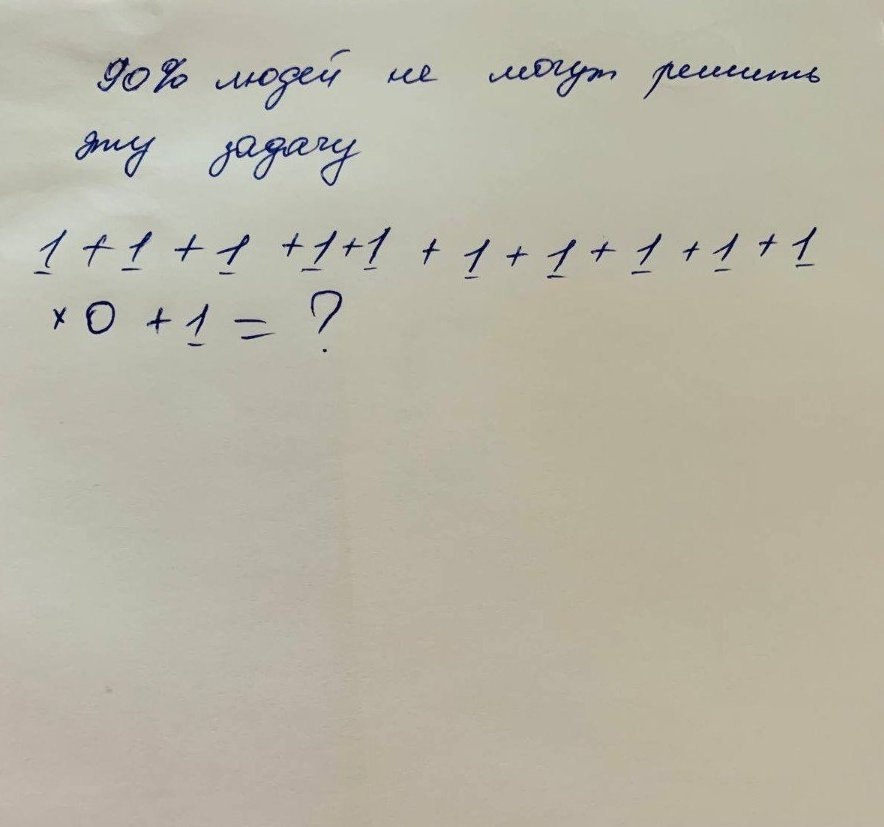 90% людей не могут решить
эту задачу
1 + 1 + 1 + 1 + 1 + 1 + 1 + 1 + 1 + 1
× 0 + 1 = ?